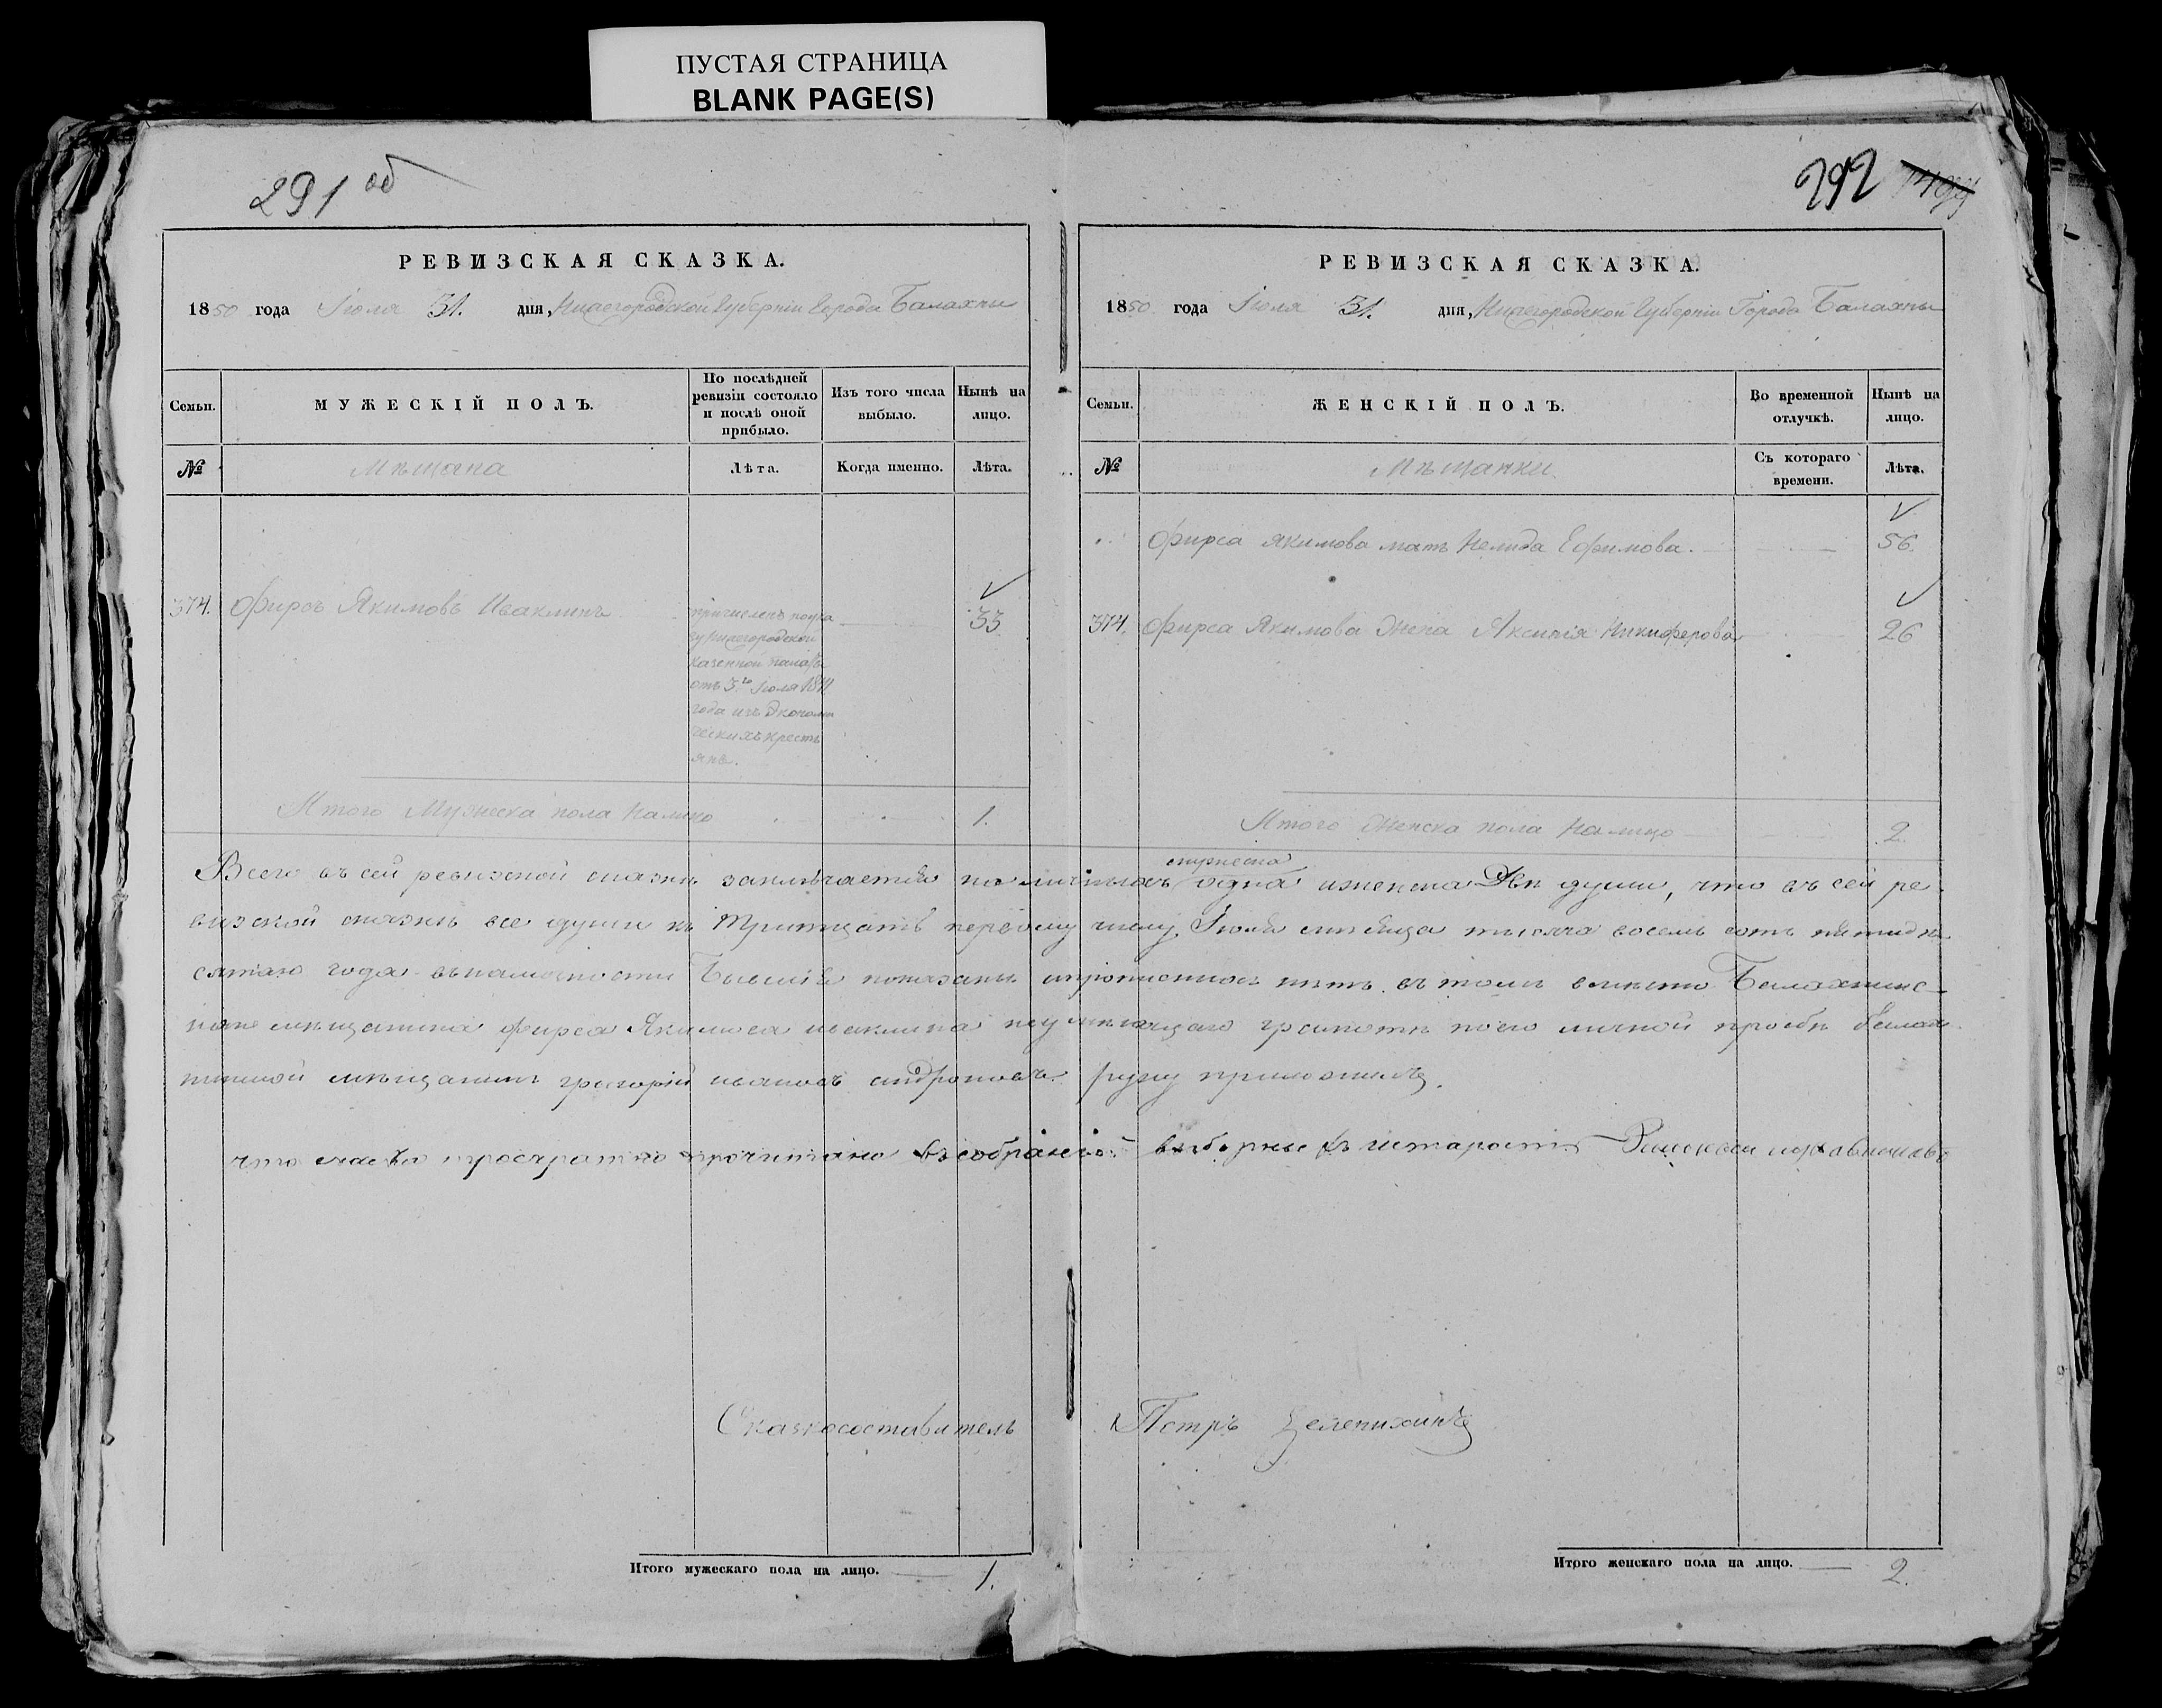 ПУСТАЯ СТРАНИЦА
BLANK PAGE(S)
291 об
РЕВИЗСКАЯ СКАЗКА.
1850 года Іюля 31. дня, Нижегородской Губерніи Города Балахны
Семьи.
МУЖЕСКІЙ ПОЛЪ.
По послѣдней ревизіи состояло и послѣ оной прибыло.
Изъ того числа выбыло.
Нынѣ на лицо.
№
Мѣщана
Лѣта.
Когда именно.
Лѣта.
374. Фирсъ Якимовъ Ивакминъ 33
причисленъ по ука
зу Нижегородской
казенной палаты
отъ 3го Іюля
года изъ Экономи
ческихъ кресть
янъ.
Итого Мужеска пола на лицо 1.
292
РЕВИЗСКАЯ СКАЗКА.
1850 года Іюля 31. дня, Нижегородской Губерніи Города Балахны
Семьи.
ЖЕНСКІЙ ПОЛЪ.
Во временной отлучкѣ.
Нынѣ на лицо.
№
Мѣщанки
Съ котораго времени.
Лѣта.
Фирса Якимова мать Ефимова. 56.
374. Фирса Якимова Жена Аксинія Никиферова 26
Итого Женска пола на лицо 2.
мужеска
Всего въ сей ревизской сказкѣ заключается наличныхъ одна и женска Двѣ души, что въ сей ре
визской сказкѣ все души къ тритцать первому числу Іюля месяца тысяча восемь сотъ пятидѣ
сятаго года въ наличности Бывшiя показаны и прописныхъ нѣтъ въ томъ вместо Балахнинс-
каго мещанина фирса Якимова неумеющаго грамотѣ по его личной прозбѣ балах
нинской мещанинъ григорій ивановъ андроновъ руку приложилъ.
что прочитано въ собраніи выборные
Сказкосоставитель Петръ Зелепихинъ
Итого мужескаго пола на лицо. 1.
Итого женскаго пола на лицо. 2.